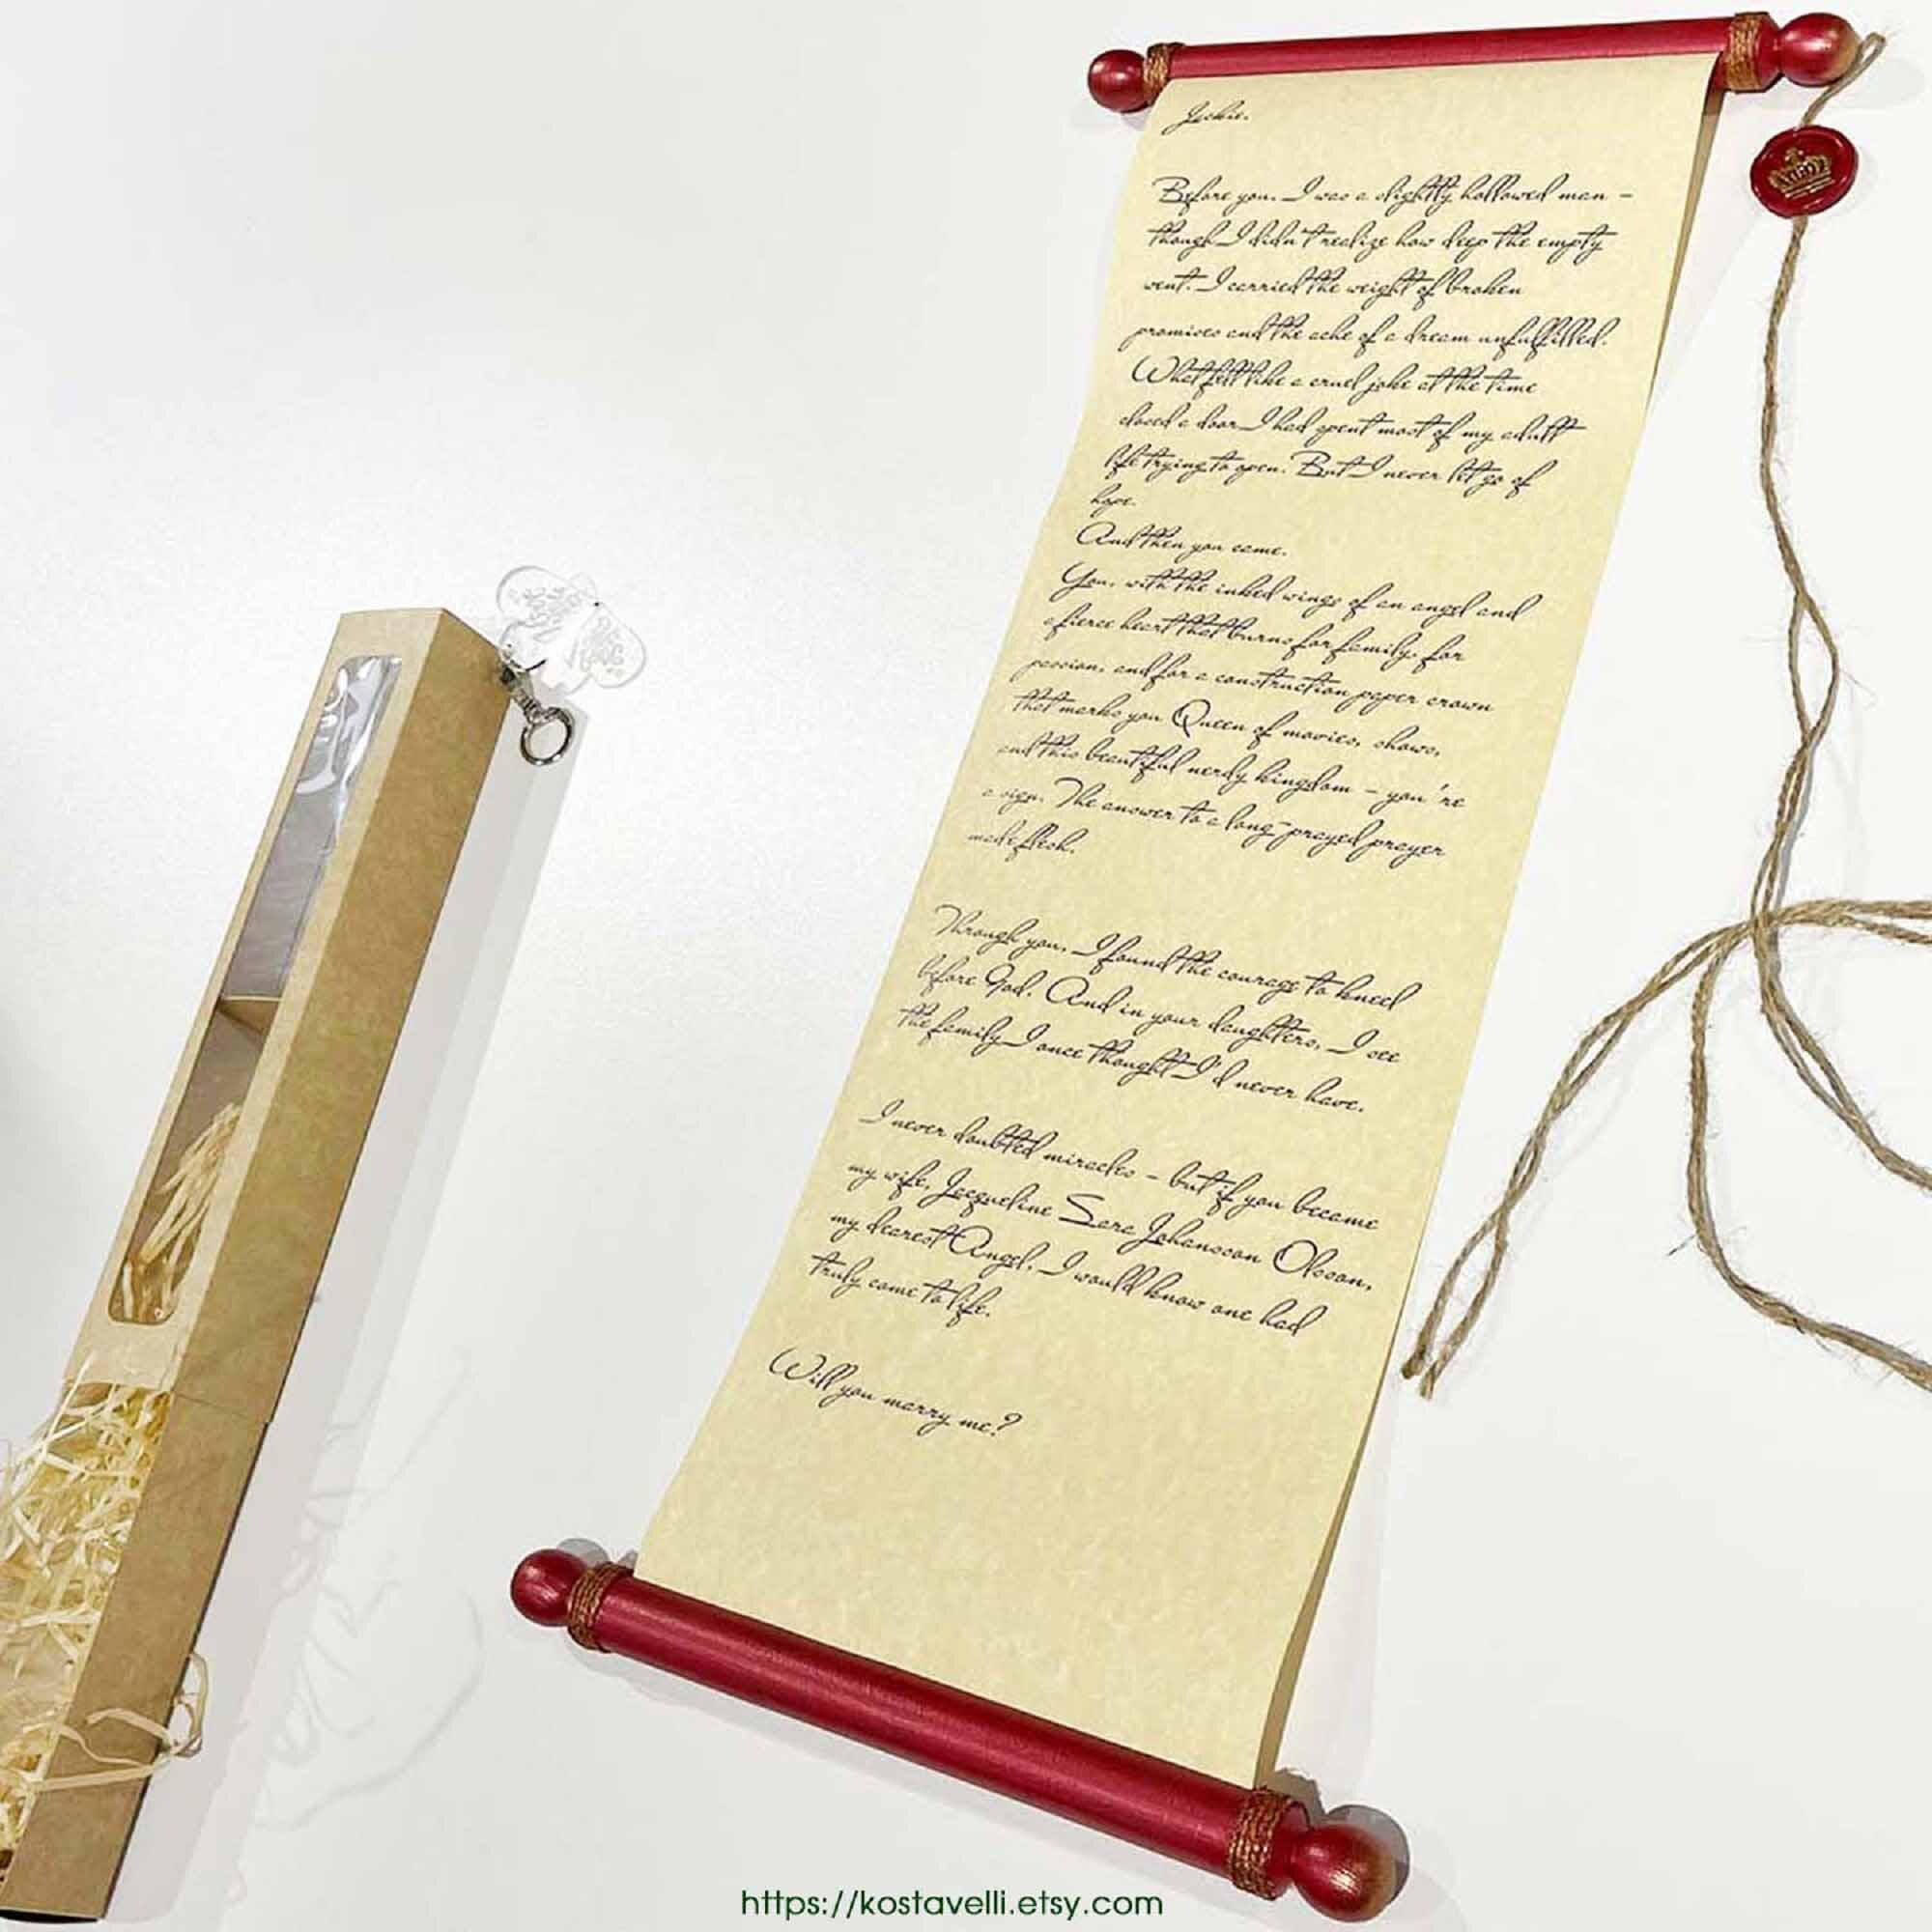 Jackie,
Before you, I was a slightly hollowed man –
though I didn't realize how deep the empty
went. I carried the weight of broken
promises and the ache of a dream unfulfilled.
What felt like a cruel joke at the time
closed a door I had spent most of my adult
life trying to open. But I never let go of
hope.
And then you came.
You, with the inked wings of an angel and
a fierce heart that burns for family, for
passion, and for a construction paper crown
that marks you Queen of movies, shows,
and this beautiful nerdy kingdom – you're
a sign. The answer to a long-prayed prayer
made flesh.
Through you, I found the courage to kneel
before God. And in your daughters, I see
the family I once thought I'd never have.
I never doubted miracles – but if you became
my wife, Jacqueline Sara Johansson Olsson,
my dearest Angel, I would know one had
truly come to life.
Will you marry me?
https://kostavelli.etsy.com